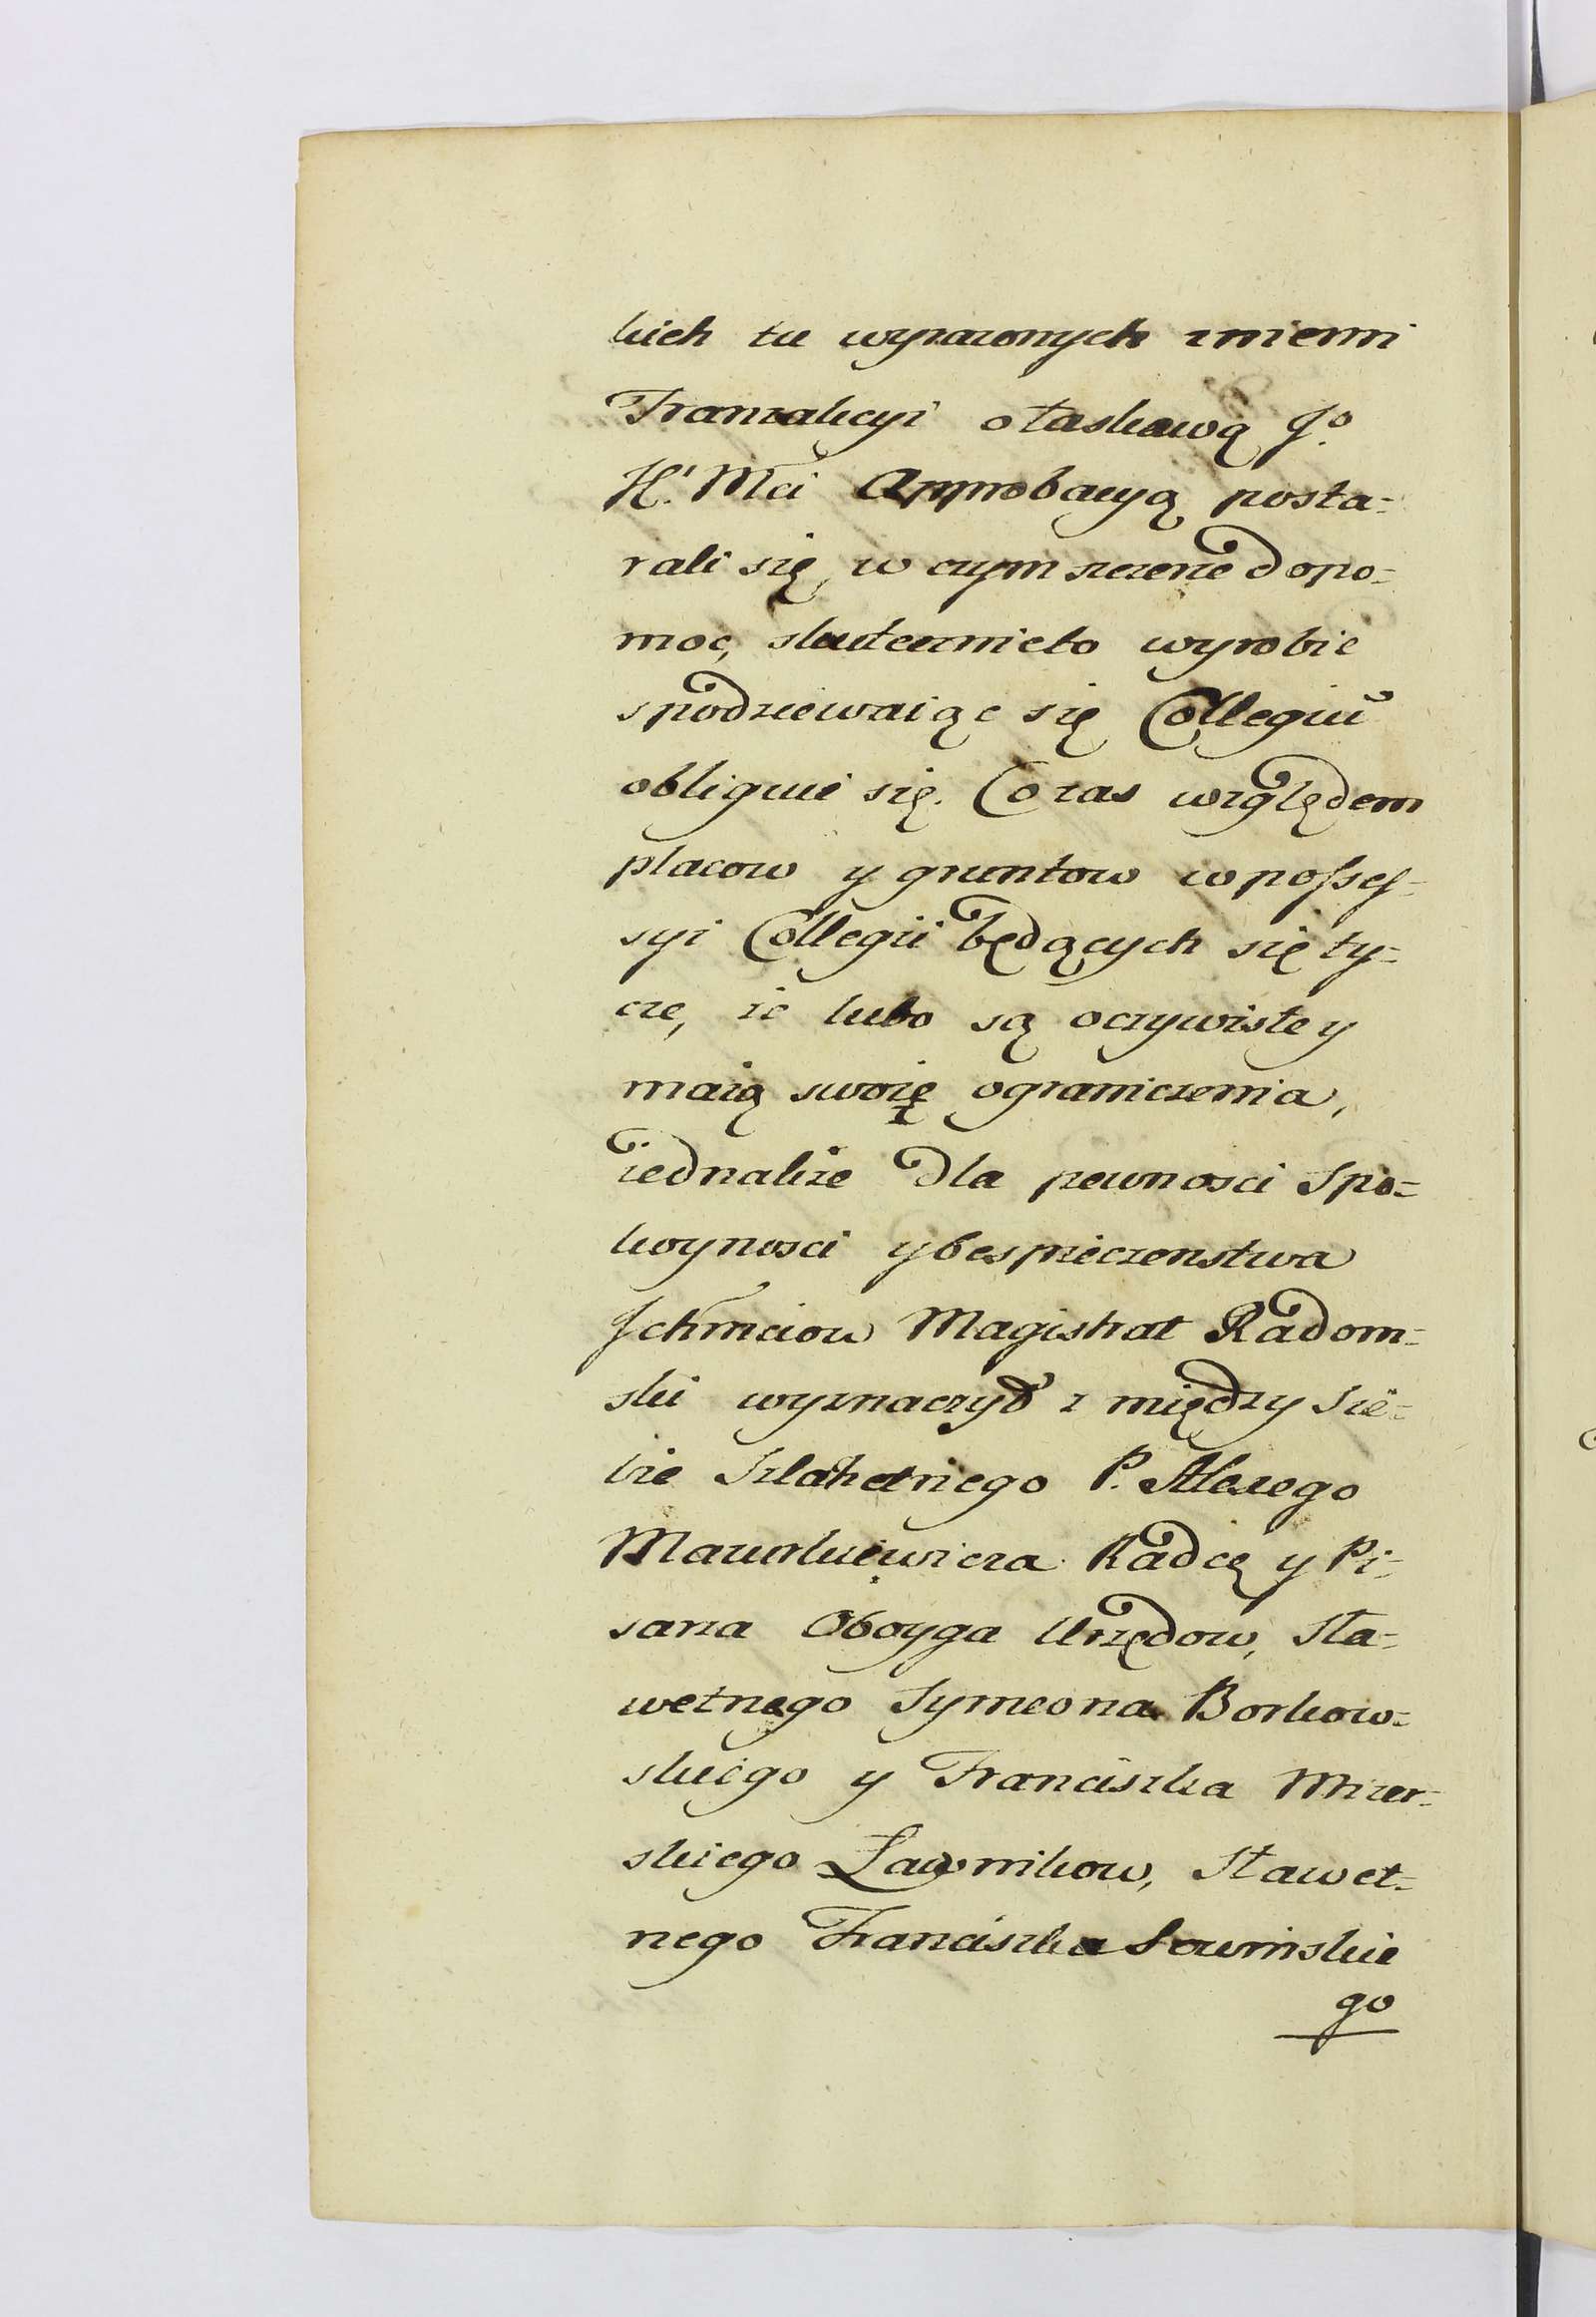 kich tu wyrazonych zniemi
Tranzakcyi o łaskawą Jº
K. Mci Approbacyą posta=
rali się, w czym szczerze dopo=
moc, skutecznieto wyrobic
spodziewaiąc się Collegiū
obliguie się. Co zas względem
placow y gruntow w posses=
syi Collegii będących się ty=
cze, że lubo są oczywiste y
maią swoię ograniczenia,
iednakże dla pewnosci spo=
koynosci y bespieczenstwa
Jchmciow Magistrat Radom=
ski wyznaczył z między sie=
bie Szlachetnego P. Alexego
Mazurkiewicza Radcę y Pi=
sarza Oboyga Urzędow, Sła=
wetnego Symeona Borkow=
skiego y Franciszka Mizer=
skiego Ławnikow, Sławet=
nego Franciszka Sowinskie
go